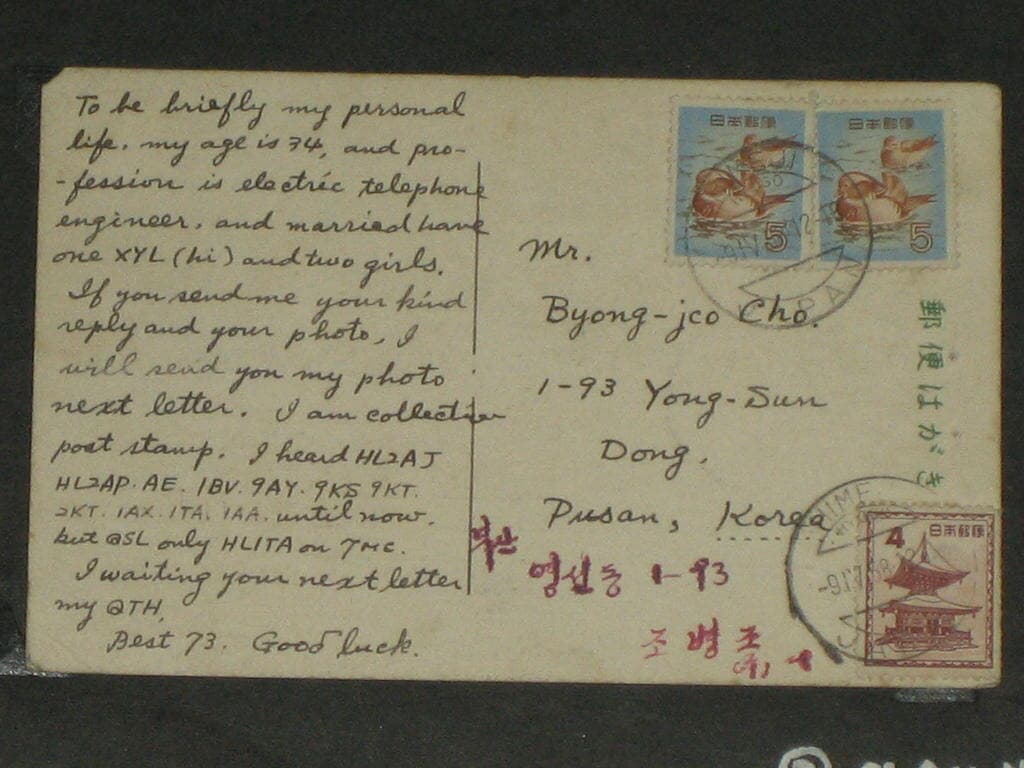 To be briefly my personal
life. my age is 34, and pro-
-fession is electric telephone
engineer. and married have
one XYL (hi) and two girls.
If you send me your kind
reply and your photo, I
will send you my photo
next letter. I am collection
post stamp. I heard HL2AJ
HL2AP. AE. 1BV. 9AY. 9KS 9KT.
2KT. 1AX. 1TA. 1AA. until now.
but QSL only HL1TA on 7MC.
I waiting your next letter
my QTH.
Best 73. Good luck.
日本郵便
5
日本郵便
5
PAN
Mr.
Byong-jco Cho.
1-93 Yong-Sun
Dong.
Pusan, Korea
郵便はがき
부산
영선동 1-93
조병조
HIME
日本郵便
4